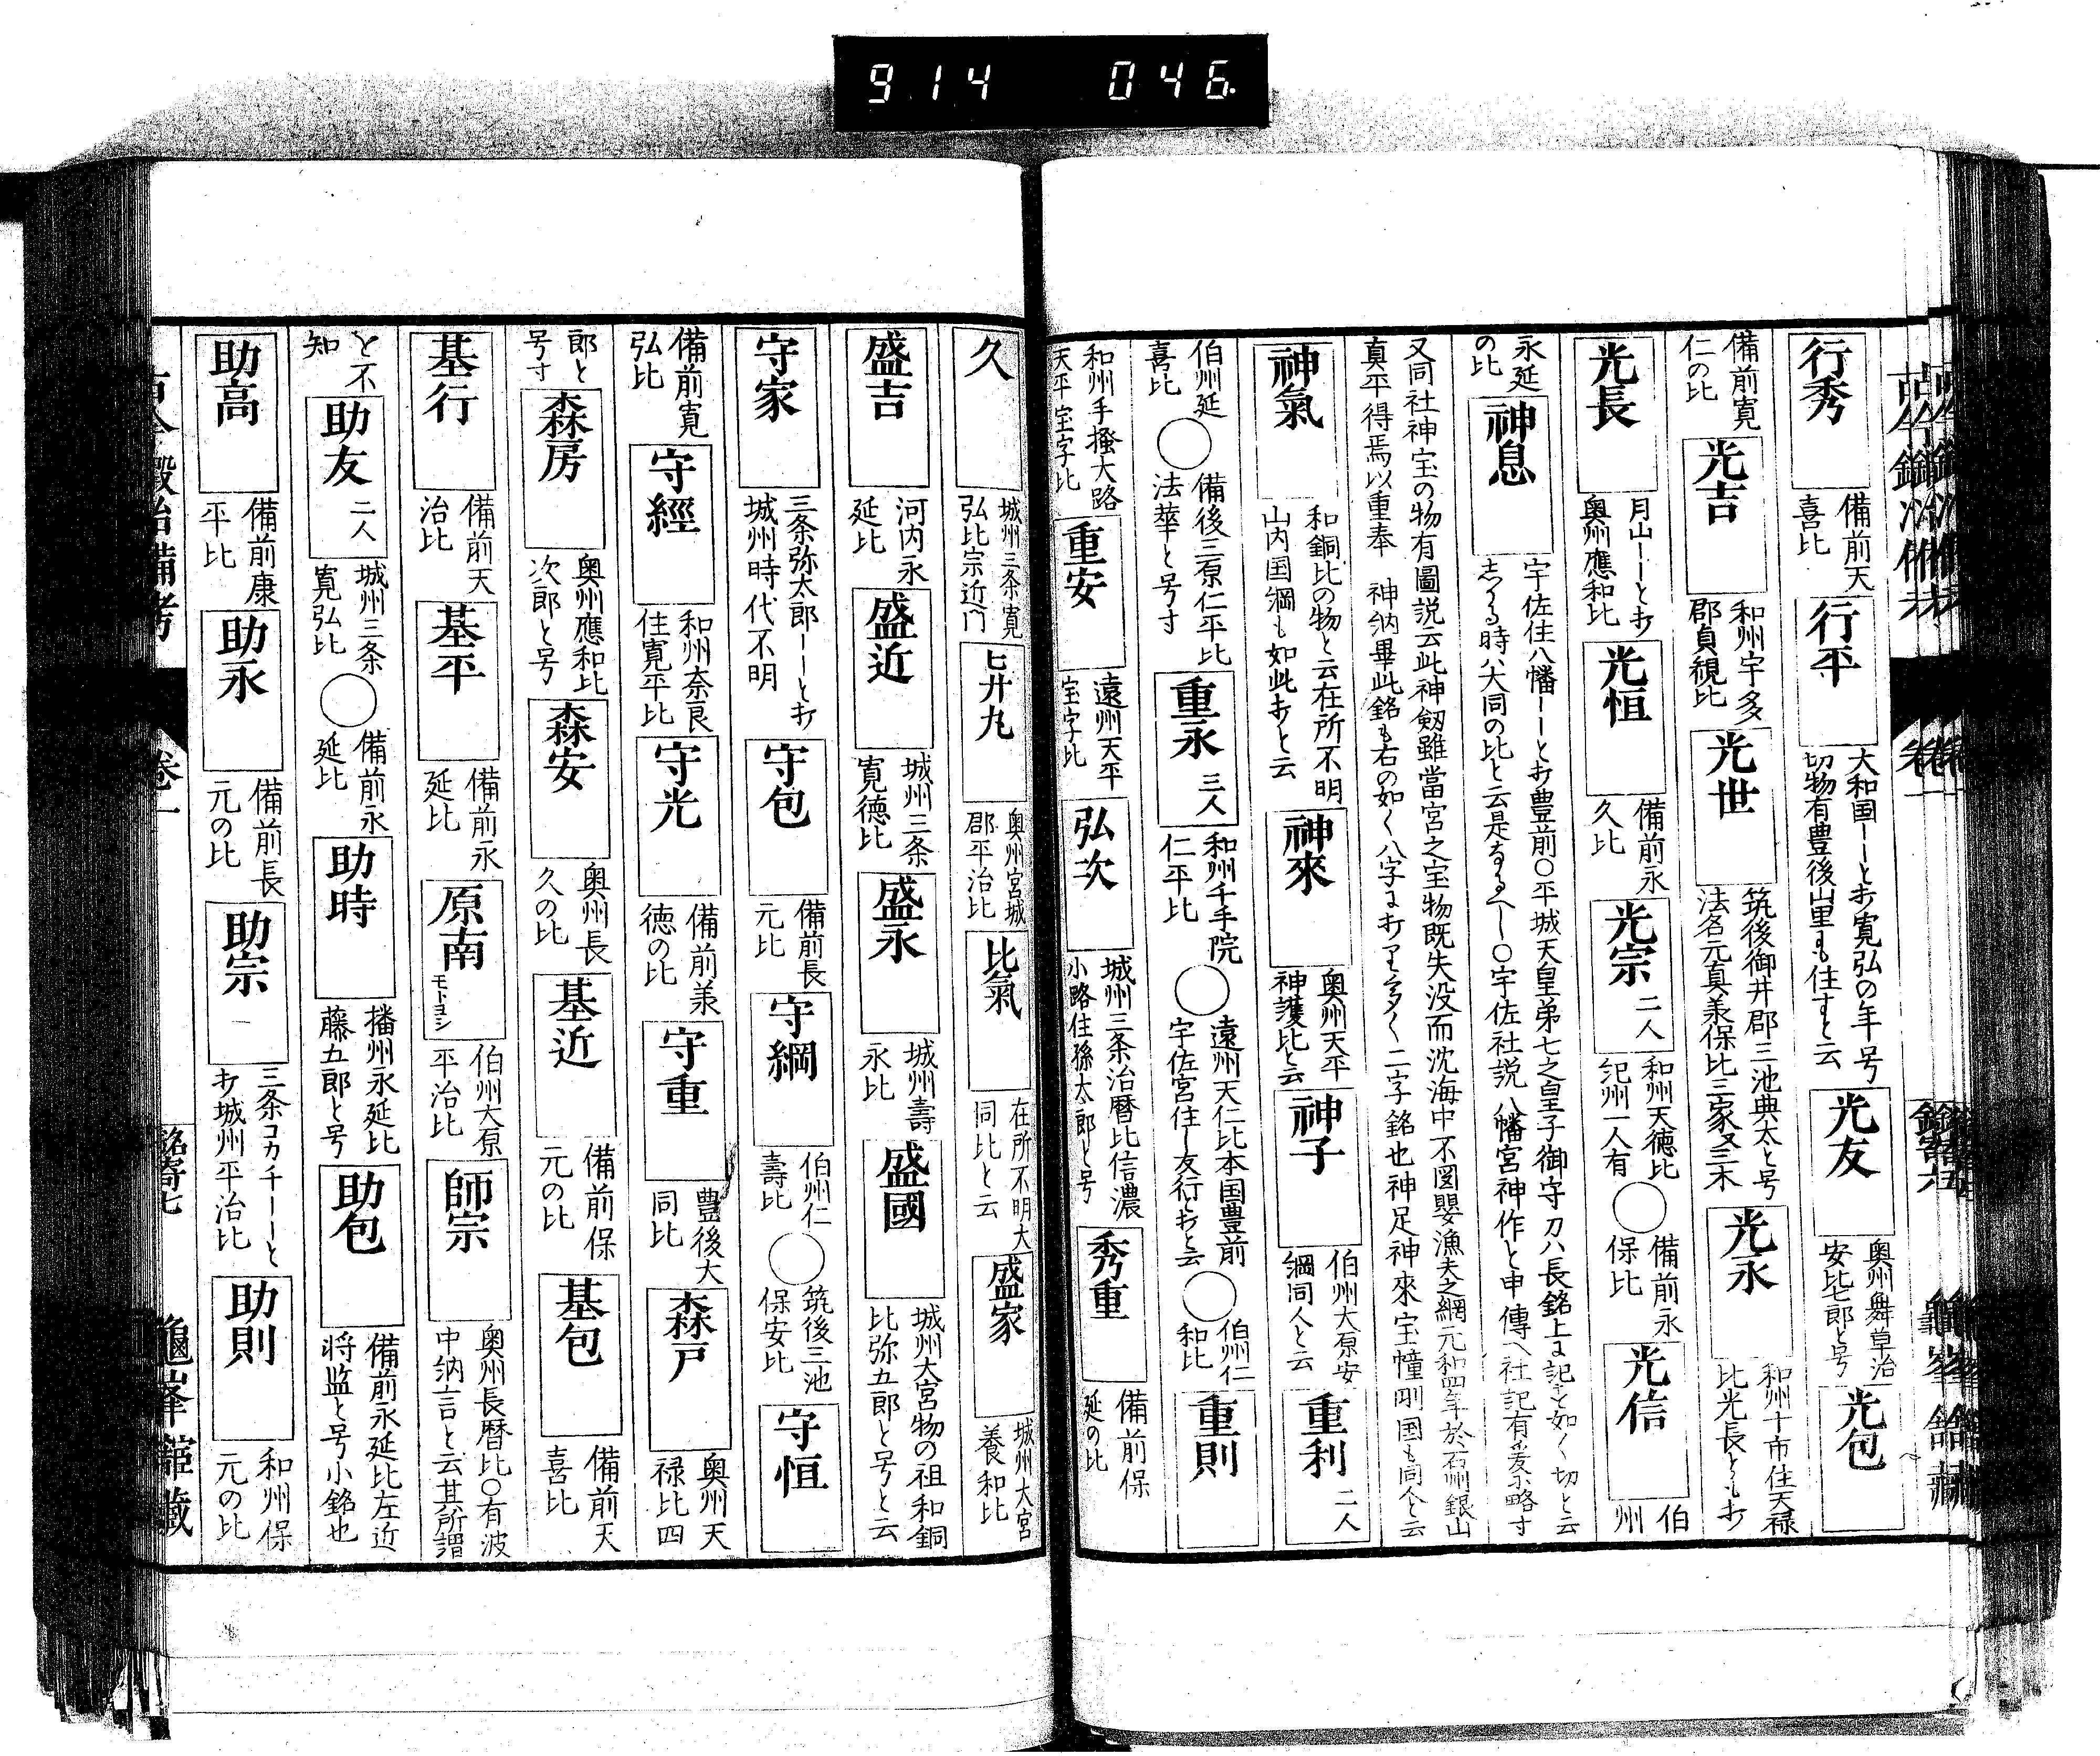 914 046
行秀 備前天喜比 行平 大和国ーとオ寛弘の年号切物有豊後山里ニも住すと云 光友 奥州舞草治安比七郎と号 光包
備前寛仁の比 光吉 和州宇多郡貞観比 光世 筑後御井郡三池典太と号法名元真義保比三家又三木 光永 和州十市住天禄比光長ともオ
光長 月山ーーとオ奥州應和比 光恒 備前永久比 光宗 二人 和州天徳比紀州一人有 ○ 備前永保比 光信 伯州
永延の比 神息 宇佐住八幡ーーとオ豊前○平城天皇弟七之皇子御守刀ハ長銘上に記すと如く切と云 時ハ大同の比と云是なるへし○宇佐社説八幡宮神作と申傳へ社記有爰ニ略す
又同社神宝の物有圖説云此神劔雖當宮之宝物既失没而沈海中不図嬰漁夫之網元和四年於石州銀山真平得焉以重奉 神納畢此銘も右の如く八字にオり多く二字銘也神足神來宝幢剛国も同人と云
神氣 和銅比の物と云在所不明山内国綱も如此オと云 神來 奥州天平神護比と云 神子 伯州大原安綱同人と云 重利 二人
伯州延喜比 ○ 備後三原仁平比法華と号す 重永 三人 和州千手院仁平比 ○ 遠州天仁比本国豊前宇佐宮住ー友行とオと云 ○ 伯州仁和比 重則
和州手掻大路天平宝字比 重安 遠州天平宝字比 弘次 城州三条治暦比信濃小路住孫太郎と号 秀重 備前保延の比
久 城州三条寛弘比宗近門 匕廾九 奥州宮城郡平治比 比氣 在所不明大同比と云 盛家 城州大宮養和比
盛吉 河内永延比 盛近 城州三条寛徳比 盛永 城州壽永比 盛國 城州大宮物の祖和銅比弥五郎と号と云
守家 三条弥太郎ーーとオ城州時代不明 守包 備前長元比 守綱 伯州仁壽比 ○ 筑後三池保安比 守恒
備前寛弘比 守經 和州奈良住寛平比 守光 備前養徳の比 守重 豊後大同比 森戸 奥州天禄比四
郎と号す 森房 奥州應和比次郎と号 森安 奥州長久の比 基近 備前保元の比 基包 備前天喜比
基行 備前天治比 基平 備前永延比 原南 モトヨシ 伯州大原平治比 師宗 奥州長暦比○有波中納言と云其所謂
を不知 助友 二人 城州三条寛弘比 ○ 備前永延比 助時 播州永延比藤五郎と号 助包 備前永延比左近将監と号小銘也
助高 備前康平比 助永 備前長元の比 助宗 一 三条コカチーーとオ城州平治比 助則 和州保元の比
古今鍛冶備考 巻一 銘寄七 龜峯舘藏